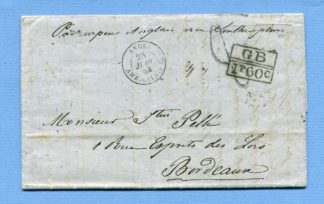 Par vapeur Anglais via Southampton
GB
1F60c
ANGL.
23
JUIN
Monsieur
Pellé
1 Rue Esprit des Lois
Bordeaux